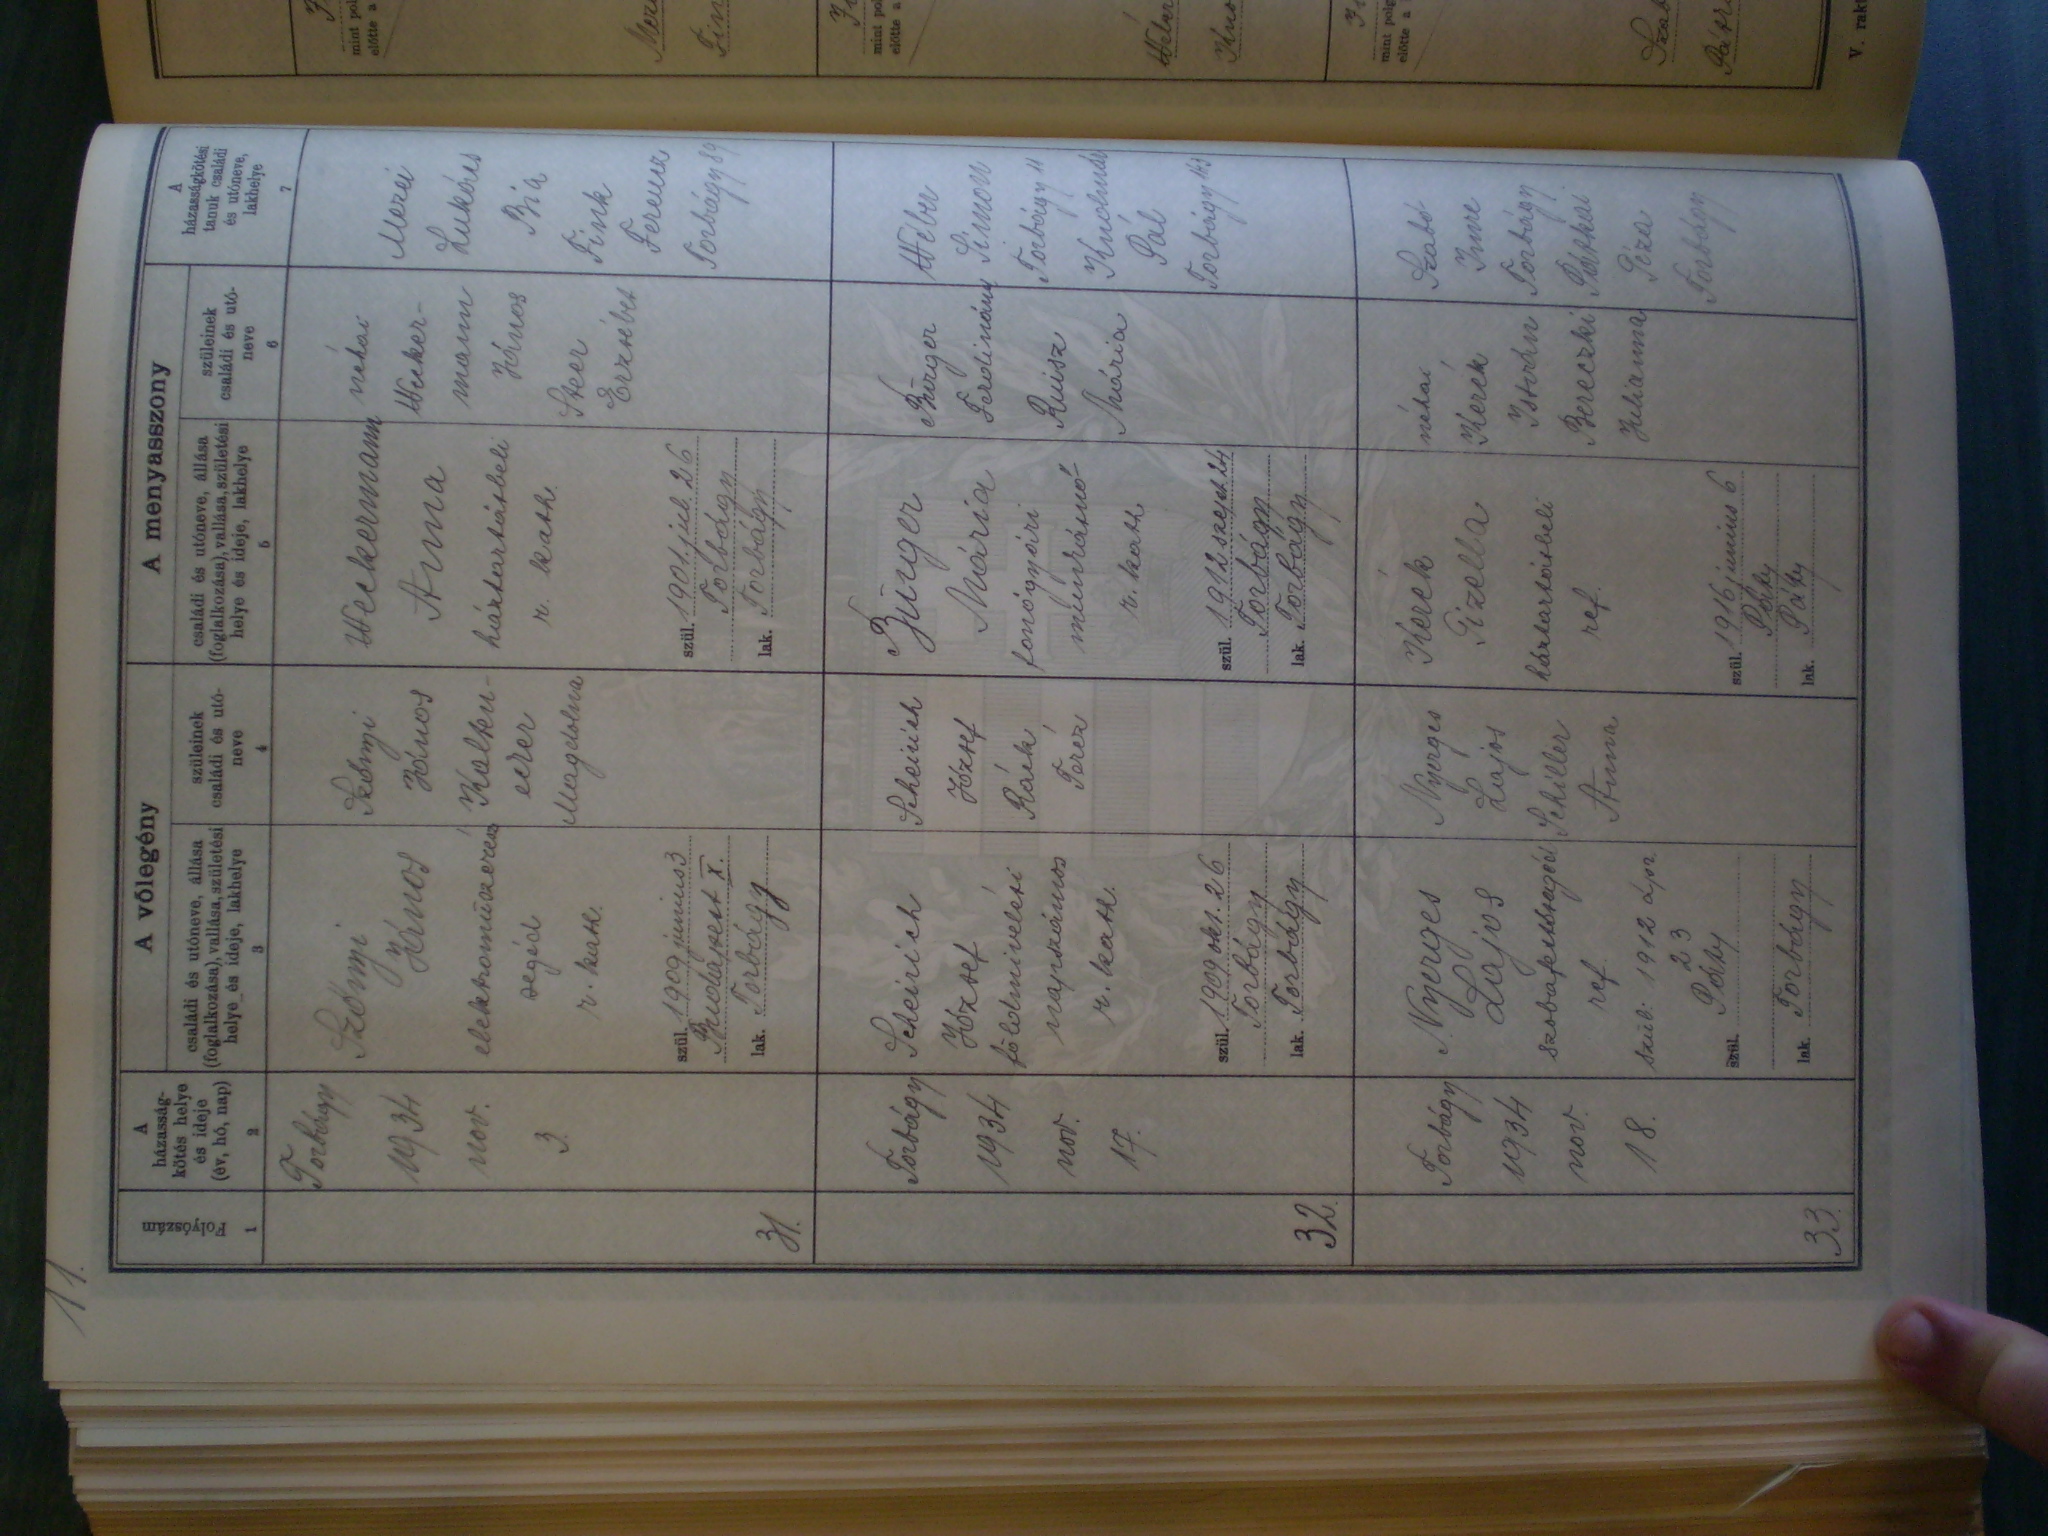 11.
A vőlegény
A menyasszony
Folyószám
1
A
házasság-
kötés helye
és ideje
(év, hó, nap)
2
családi és utóneve, állása
(foglalkozása), vallása, születési
helye és ideje, lakhelye
3
szüleinek
családi és utó-
neve
4
családi és utóneve, állása
(foglalkozása), vallása, születési
helye és ideje, lakhelye
5
szüleinek
családi és utó-
neve
6
A
házasságkötési
tanuk családi
és utóneve,
lakhelye
7
31.
Torbágy
1934
nov.
3.
Szőnyi
János
elektroműszerész
segéd
r. kath.
szül. 1909 junius 3
Budapest X.
lak. Torbágy
Szőnyi
János
Magdolna
Weckermann
Anna
háztartásbeli
r. kath.
szül. 1901. jul. 26
Torbágy
lak. Torbágy
néhai
Wecker-
mann
János
Erzsébet
Mezei
Lukács
Bia
Fink
Ferenc
Torbágy 89
32.
Torbágy
1934
nov.
17.
Scheirich
József
földmivelési
napszámos
r. kath.
szül. 1909 okt. 26
Torbágy
lak. Torbágy
Scheirich
József
Teréz
Bürger
Mária
fonógyári
munkásnő
r. kath.
szül. 1912 szept 24
Torbágy
lak. Torbágy
Bürger
Ferdinánd
Mária
Wéber
Simon
Torbágy 11
Pál
Torbágy 143
33.
Torbágy
1934
nov.
18.
Nyerges
Lajos
szobafestősegéd
ref.
szül: 1912 ápr
23
Páty
szül.
lak. Torbágy
Nyerges
Lajos
Schiller
Anna
Kerék
Gizella
háztartásbeli
ref.
szül. 1916 junius 6
Páty
lak. Páty
néhai
Kerék
István
Bereczki
Julianna
Szabó
Imre
Torbágy
Pátkai
Géza
Torbágy
mint polg
előtte a
mint polg
előtte a
mint polg
előtte a
V. rakt